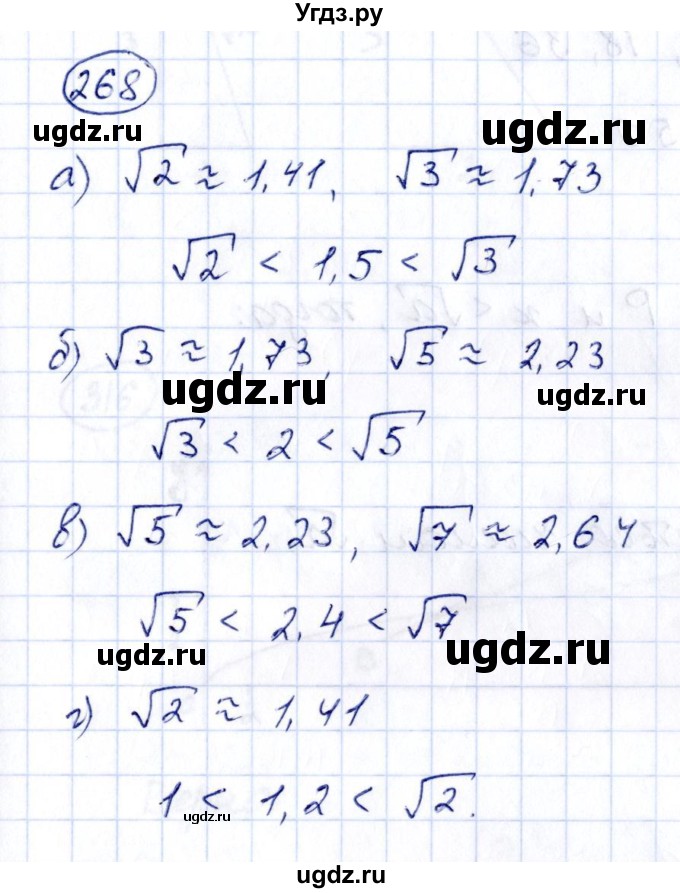 Угдз.ру
268
ugdz.ru
ugdz.ru
а) √2 ≈ 1,41, √3 ≈ 1,73
√2 < 1,5 < √3
б) √3 ≈ 1,73, √5 ≈ 2,23
ugdz.ru
ugdz.ru
√3 < 2 < √5
в) √5 ≈ 2,23, √7 ≈ 2,64
√5 < 2,4 < √7
ugdz.ru
ugdz.ru
г) √2 ≈ 1,41
1 < 1,2 < √2.
ugdz.ru
ugdz.ru